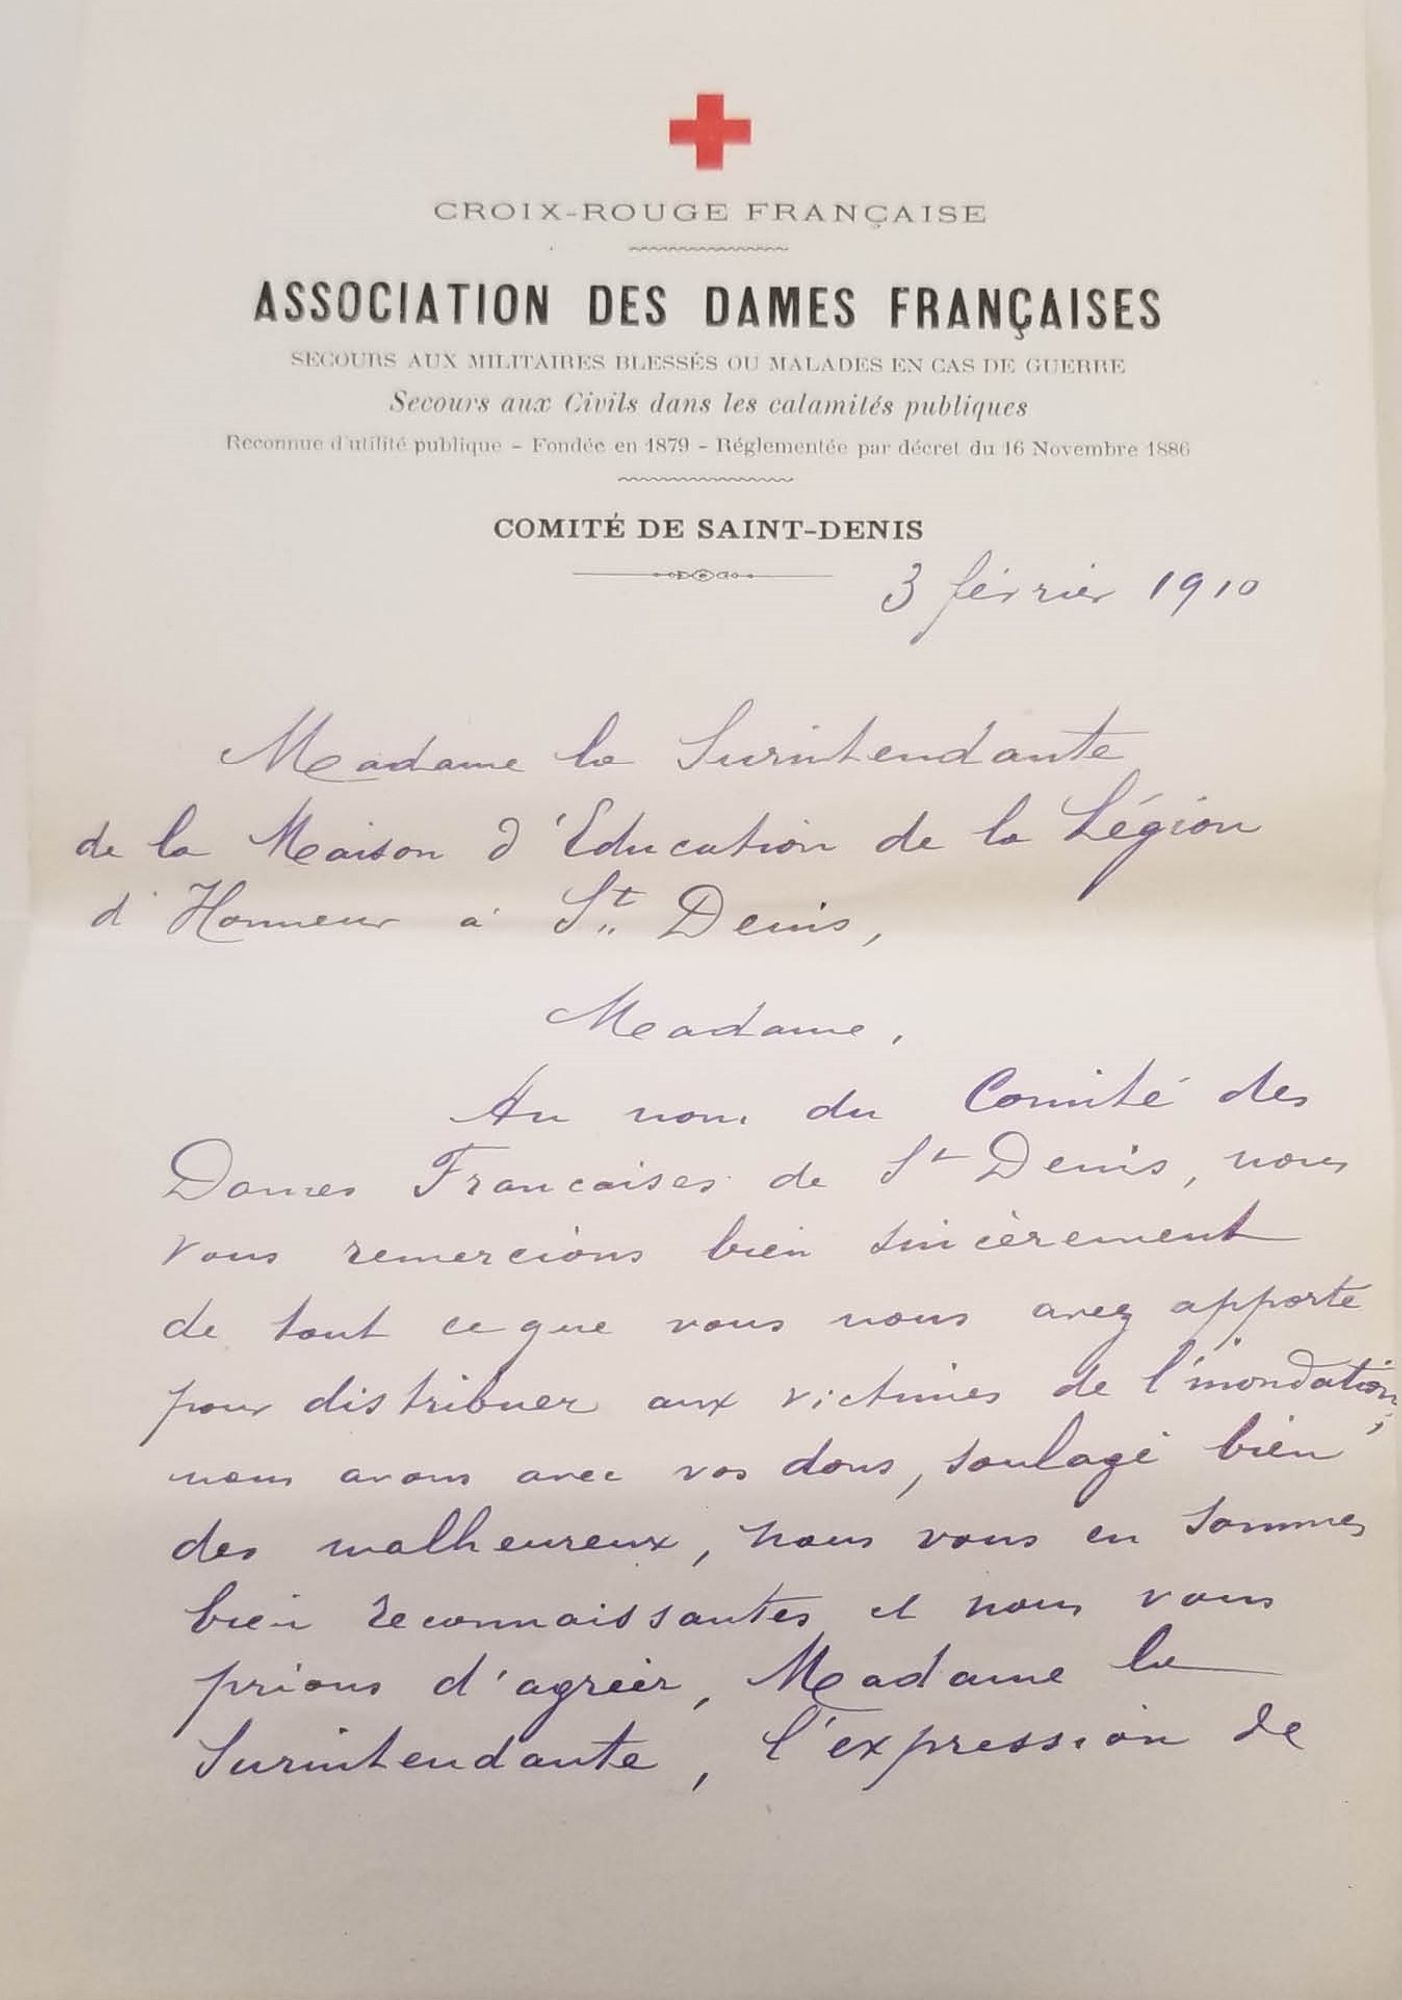 CROIX-ROUGE FRANÇAISE
ASSOCIATION DES DAMES FRANÇAISES
SECOURS AUX MILITAIRES BLESSÉS OU MALADES EN CAS DE GUERRE
Secours aux Civils dans les calamités publiques
Reconnue d'utilité publique - Fondée en 1879 - Réglementée par décret du 16 Novembre 1886
COMITÉ DE SAINT-DENIS
3 février 1910
Madame la Surintendante
de la Maison d'Education de la Légion
d'Honneur à St Denis,
Madame,
Au nom du Comité des
Dames Francaises de St Denis, nous
vous remercions bien sincèrement
de tout ce que vous nous avez apporte
pour distribuer aux victimes de l'inondation,
nous avons avec vos dons, soulagé bien
des malheureux, nous vous en sommes
bien reconnaissantes et nous vous
prions d'agréer, Madame la
Surintendante, l'expression de